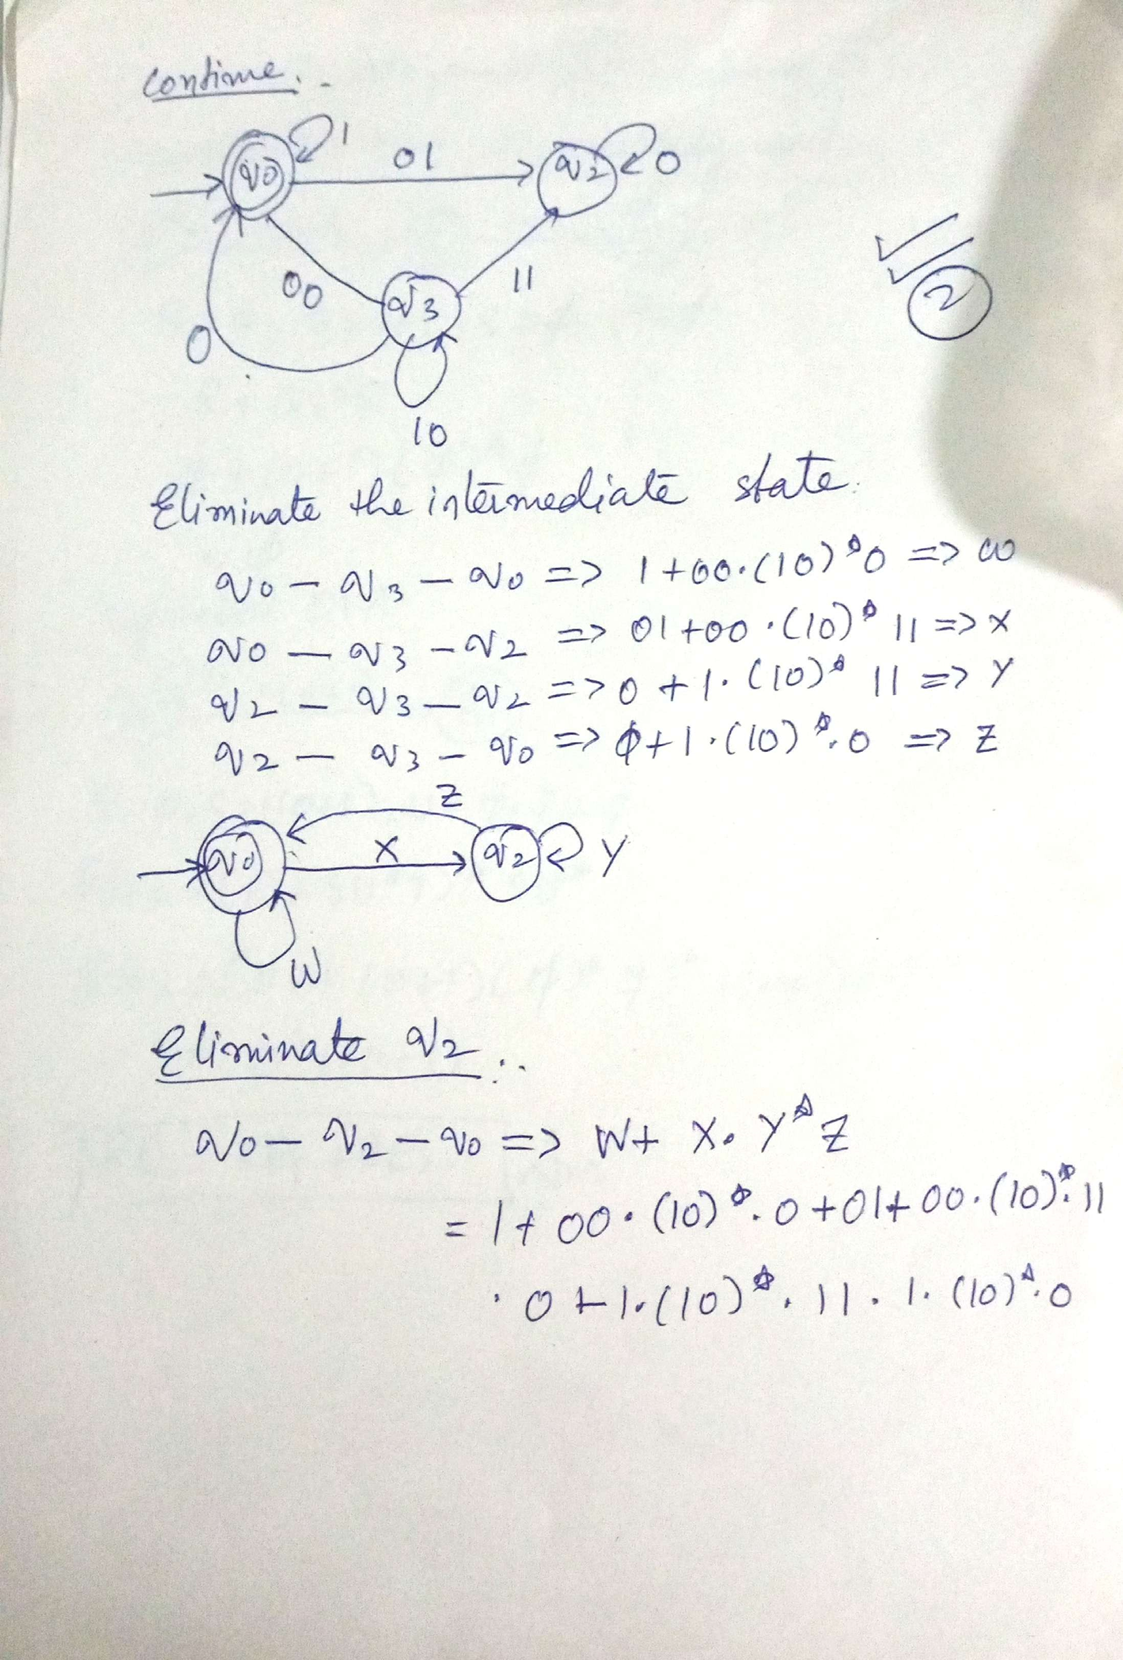 continue..
q0 1 01 q2 0
00 q3 11
0
10
2
Eliminate the intermediate state.
q0 – q3 – q0 => 1+00.(10)*0 => w
q0 – q3 – q2 => 01+00.(10)* 11 => X
q2 – q3 – q2 => 0+1.(10)* 11 => Y
q2 – q3 – q0 => φ+1.(10)*.0 => Z
Z
q0 X q2 Y
W
Eliminate q2..
q0 – q2 – q0 => W+ X. Y* Z
= 1+ 00.(10)*.0+01+00.(10)*.11
. 0+1.(10)*.11.1.(10)*.0